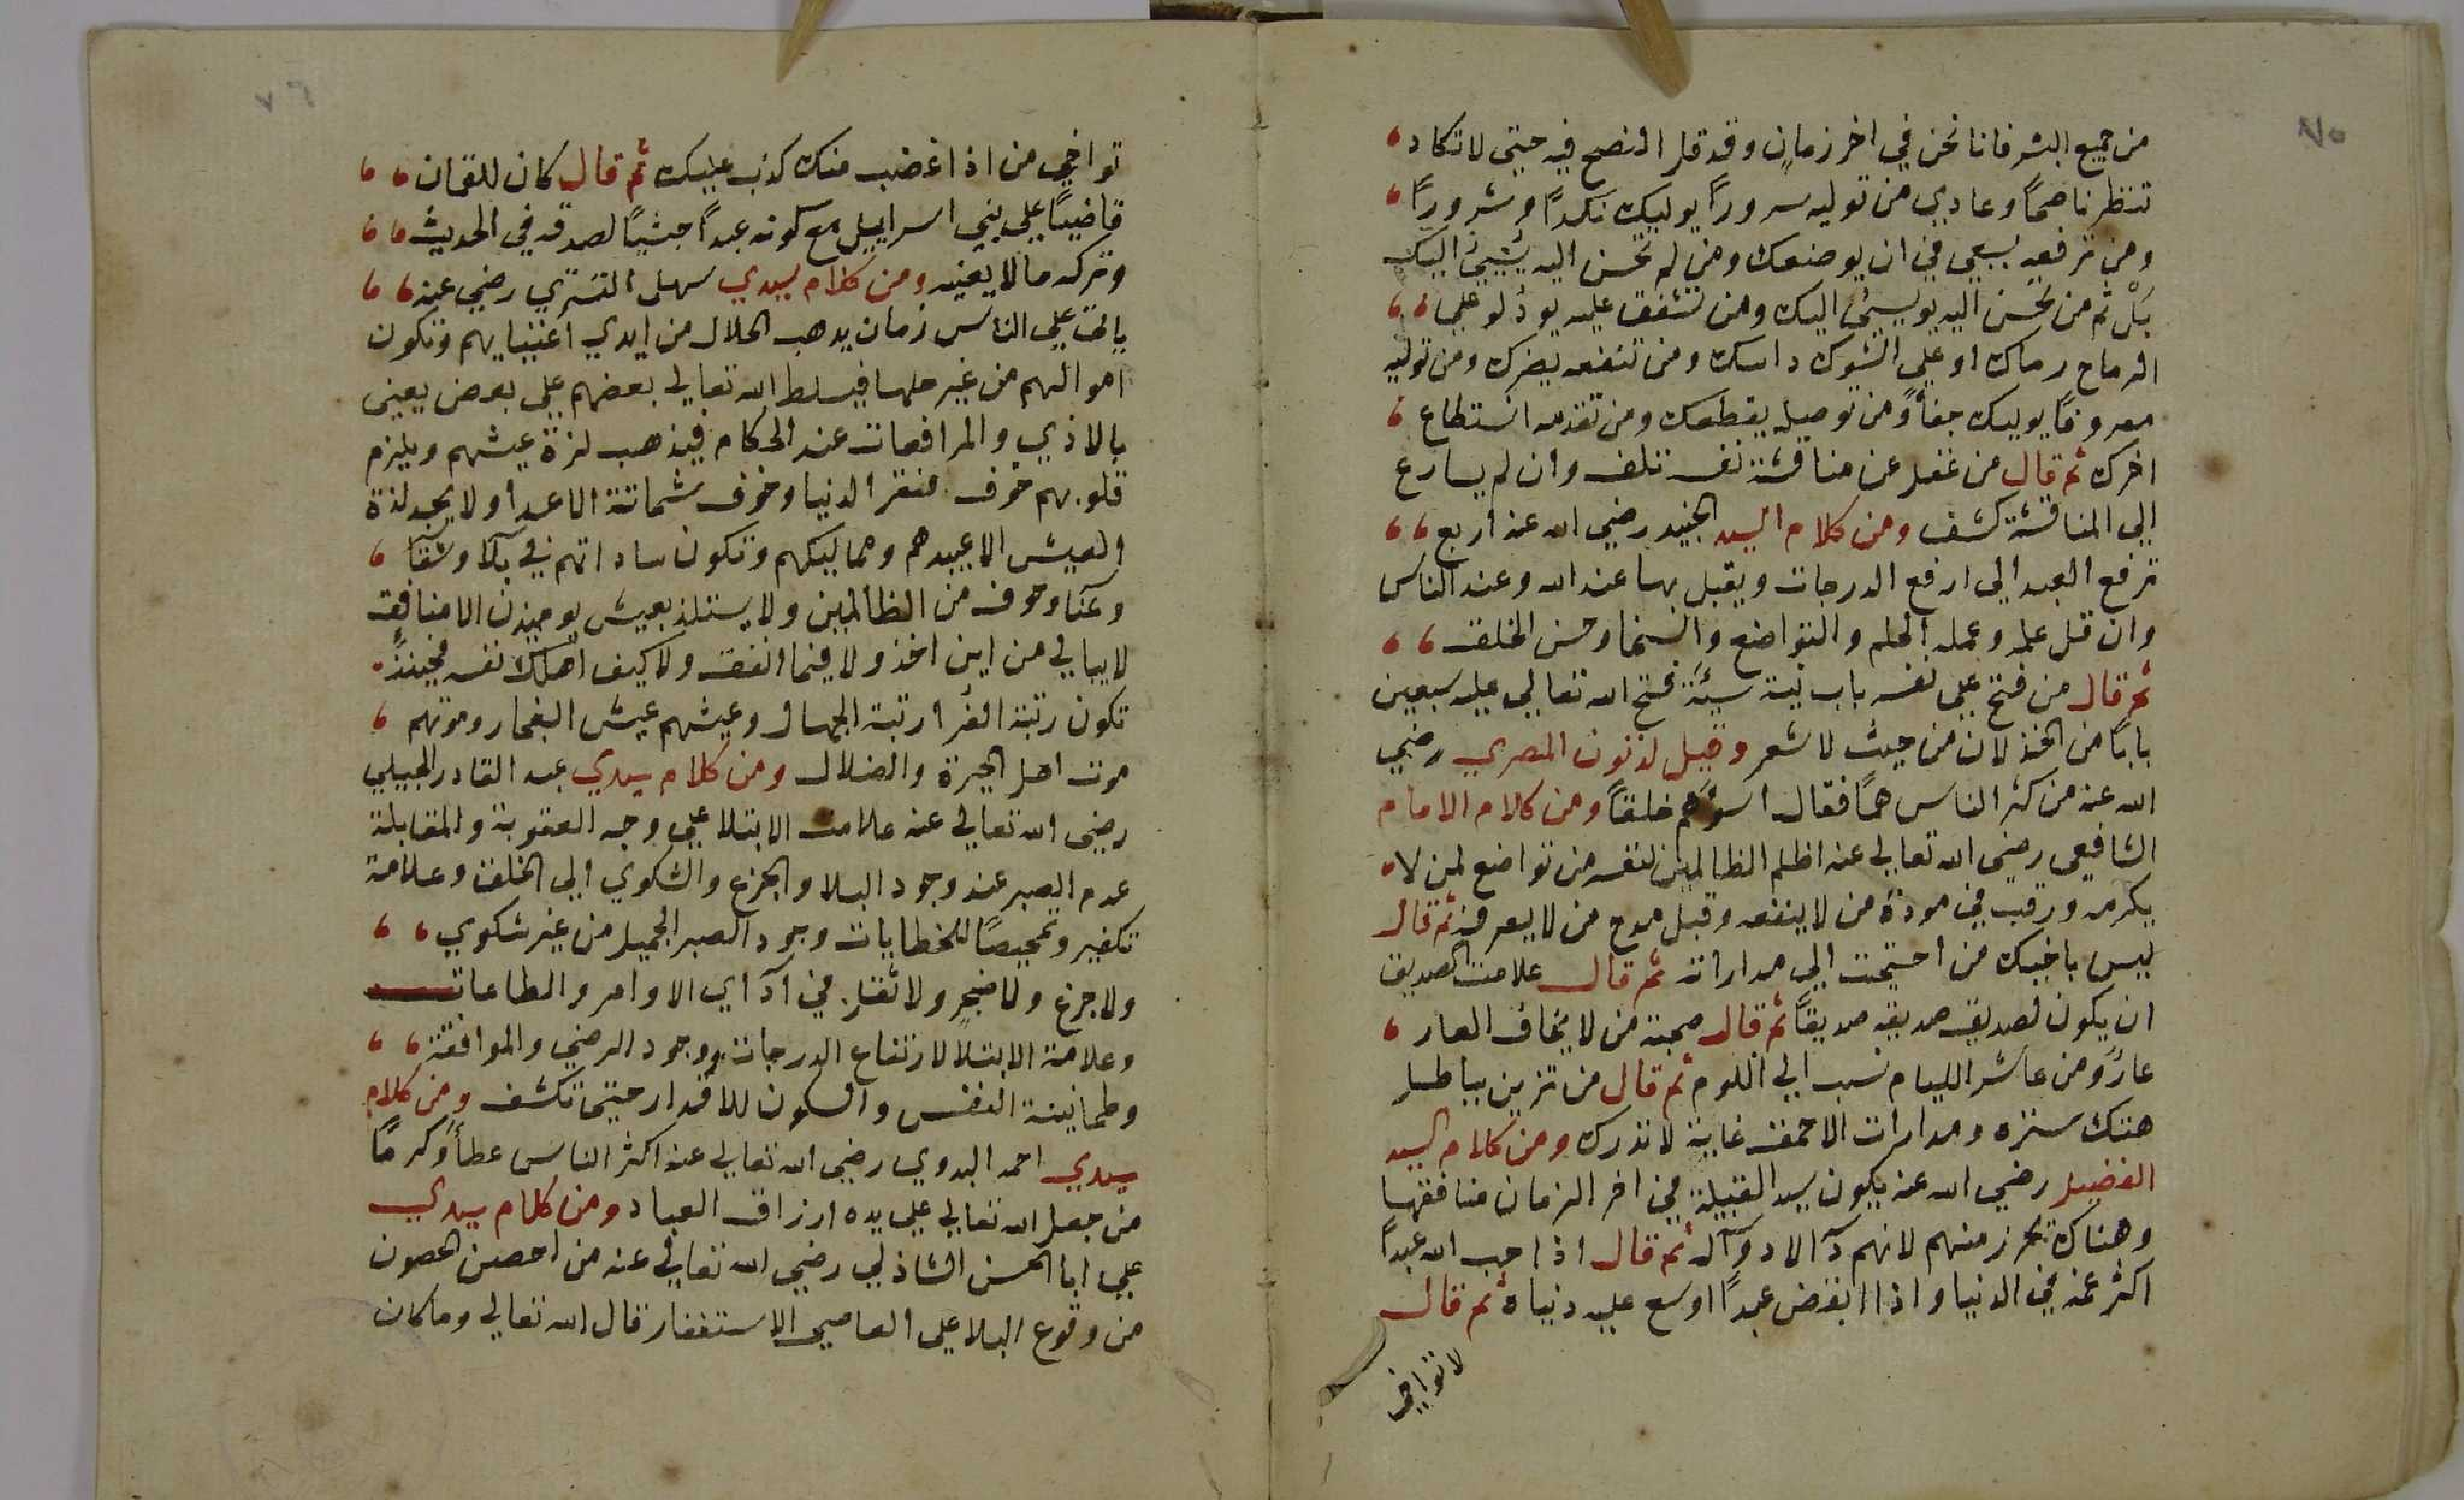 ٧٥
من جميع البشر فاننا نحن في اخر زمان وقد قل النصح فيه حتى لا تكاد
تنظر ناصحًا وعادي من توليه سرورًا يوليك نكدًا وشرورًا
ومن ترفعه يسعي في ان يوضعك ومن لم تحسن اليه يسيئ اليك
بل ثم من تحسن اليه يسيئ اليك ومن تشفق عليه يود لو علي
الرماح رماك او علي الشوك داسك ومن تنفعه يضرك ومن توليه
معروفًا يوليك جفأً ومن توصله يقطعك ومن تقدمه استطاع
اخرك ثم قال من غفل عن مناقشة نفسه تلف وان لم يسارع
الي المناقشة كشف ومن كلام السيد الجنيد رضي الله عنه اربع
ترفع العبد الي ارفع الدرجات ويقبل بها عند الله وعند الناس
وان قل علمه وعمله الحلم والتواضع والسخا وحسن الخلق
ثم قال من فتح علي نفسه باب نية سيئة فتح الله تعالي عليه سبعين
بابًا من الخذلان من حيث لا شعر وقيل لذنون المصري رضي
الله عنه من كثر الناس همًا فقال اسوءهم خلقًا ومن كلام الامام
الشافعي رضي الله تعالي عنه اظلم الظالمين لنفسه من تواضع لمن لا
يكرمه ورغب في مودة من لا ينفعه وقبل مدح من لا يعرفه ثم قال
ليس باخيك من احتجت الي مداراته ثم قال علامت الصديق
ان يكون لصديق صديقه صديقًا ثم قال صحبة من لا يخاف العار
عارٌ ومن عاشر الليام نسب الي اللوم ثم قال من تزين بباطل
هتك ستره ومدارات الاحمق غاية لا تدرك ومن كلام السيد
الفضيل رضي الله عنه يكون سيد القبيلة في اخر الزمان منافقها
وهناك تحرز منهم لانهم دآ لا دوآ له ثم قال اذا احب الله عبدًا
اكثر غمه في الدنيا واذا ابغض عبدًا اوسع عليه دنياه ثم قال
لا تواخي
٧٦
تواخي من اذا غضب منك كذب عليك ثم قال كان للقمان
قاضيًا علي بني اسراييل مع كونه عبدًا حبشيًا لصدقه في الحديث
وتركه ما لا يعنيه ومن كلام سيدي سهل التستري رضي عنه
ياتي علي الناس زمان يدهب الحلال من ايدي اغنيايهم وتكون
اموالهم من غير حلها فيسلط الله تعالي بعضهم علي بعض يعني
بالاذي والمرافعات عند الحكام فيذهب لزة عيشهم ويلزم
قلوبهم خوف فقر الدنيا وخوف شماتة الاعدا ولا يجد لذة
العيش الا عبيدهم ومماليكهم وتكون ساداتهم في بلآ وشقآ
وعنآ وخوف من الظالمين ولا يستلذ بعيش يوميذن الا منافق
لا يبالي من اين اخذ ولا فيما انفق ولا كيف اهلك نفسه فحينئذٍ
تكون رتبة القرأ رتبة الجهال وعيشهم عيش الفجار وموتهم
موت اهل الحيرة والضلال ومن كلام سيدي عبد القادر الجيلي
رضي الله تعالي عنه علامت الابتلا علي وجه العقوبة والمقابلة
عدم الصبر عند وجود البلا والجزع والشكوي الي الخلق وعلامة
تكفير وتمحيصًا للخطايات وجود الصبر الجميل من غير شكوي
ولا جزع ولا ضجر ولا ثقل في آدآي الاوامر والطاعات
وعلامة الابتلا لارتفاع الدرجات ووجود الرضي والموافقة
وطمانينة النفس والسكون للاقدار حتى تكشف ومن كلام
سيدي احمد البدوي رضي الله تعالي عنه اكثر الناس عطأً وكرمًا
من جعل الله تعالي علي يده ارزاق العباد ومن كلام سيدي
علي ابا الحسن الشاذلي رضي الله تعالي عنه من احصن الحصون
من وقوع البلا علي العاصي الاستغفار قال الله تعالي وما كان